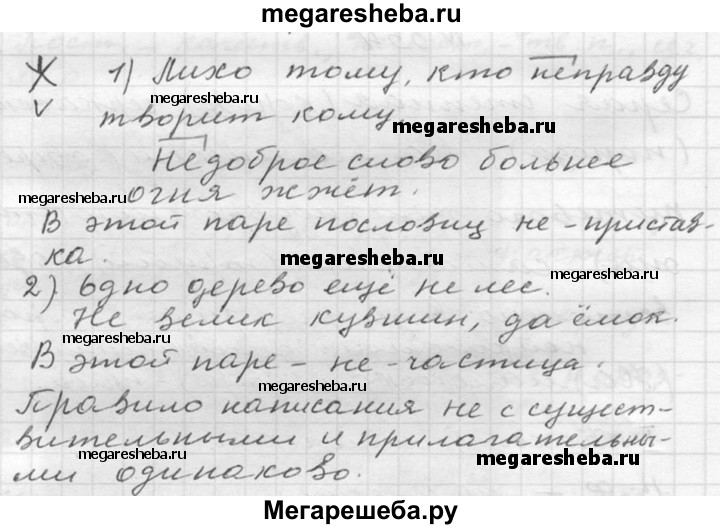 megaresheba.ru
1) Лихо тому, кто неправду
megaresheba.ru megaresheba.ru
творит кому.
megaresheba.ru
Недоброе слово больнее
megaresheba.ru
огня жжёт.
megaresheba.ru
В этой паре пословиц не - пристав-
ка.
megaresheba.ru
megaresheba.ru
2) Одно дерево ещё не лес.
Не велик кувшин, да ёмок.
megaresheba.ru
В этой паре - не - частица.
megaresheba.ru
Правило написания не с сущест-
вительными и прилагательны-
megaresheba.ru megaresheba.ru
ми одинаково.
Мегарешеба.ру